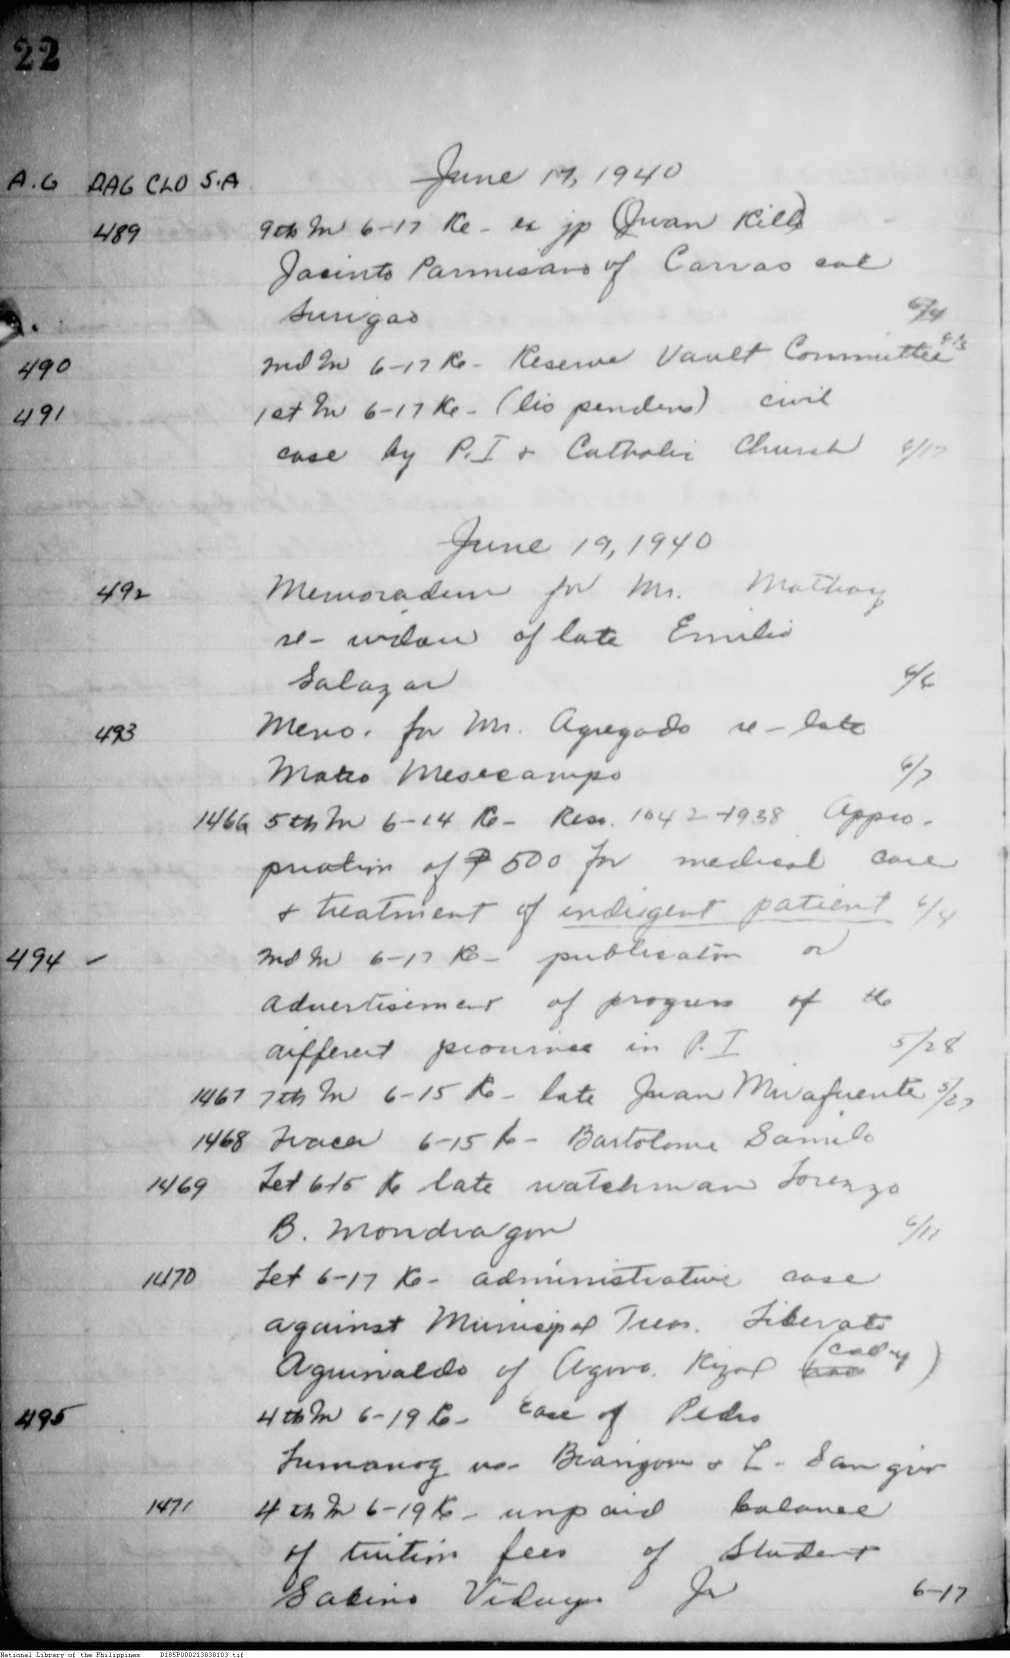 22
A.G DAG CLO S.A June 17, 1940
489 9th In 6-17 Re- ex jp (Juan Kills)
Jacinto Parmisano of Carras cal
Surigao 6/4
490 2nd In 6-17 Re- Reserve Vault Committee 6/13
491 1st In 6-17 Re- (lis pendens) civil
case by P.I & Catholic Church 6/17
June 19, 1940
492 Memoradum for Mr. Mathay
re- widow of late Emilio
Salazar 6/6
493 Memo. for Mr. Agregado re- late
Mateo Mesecampo 6/7
1466 5th In 6-14 Re- Reso. 1042-1938 Appro-
priation of ₱500 for medical care
& treatment of indigent patient 6/4
494 - 2nd In 6-17 Re- publication or
advertisement of progress of the
different provinces in P.I 5/28
1467 7th In 6-15 Re- late Juan Mirafuente 5/27
1468 6-15 Re- Bartolome Samilo
1469 Let 6-15 Re late watchman Lorenzo
B. Mondragon 6/11
1470 Let 6-17 Re- administrative case
against Municipal Treas. Liberato
Aguinaldo of Agono. Rizal
495 4th In 6-19 Re- case of Pedro
Lumanog vs- Biangon & L- San gio
1471 4th In 6-19 Re- unpaid balance
of tuition fees of Student
Sabino Jr 6-17
National Library of the Philippines D185P000213838103.tif